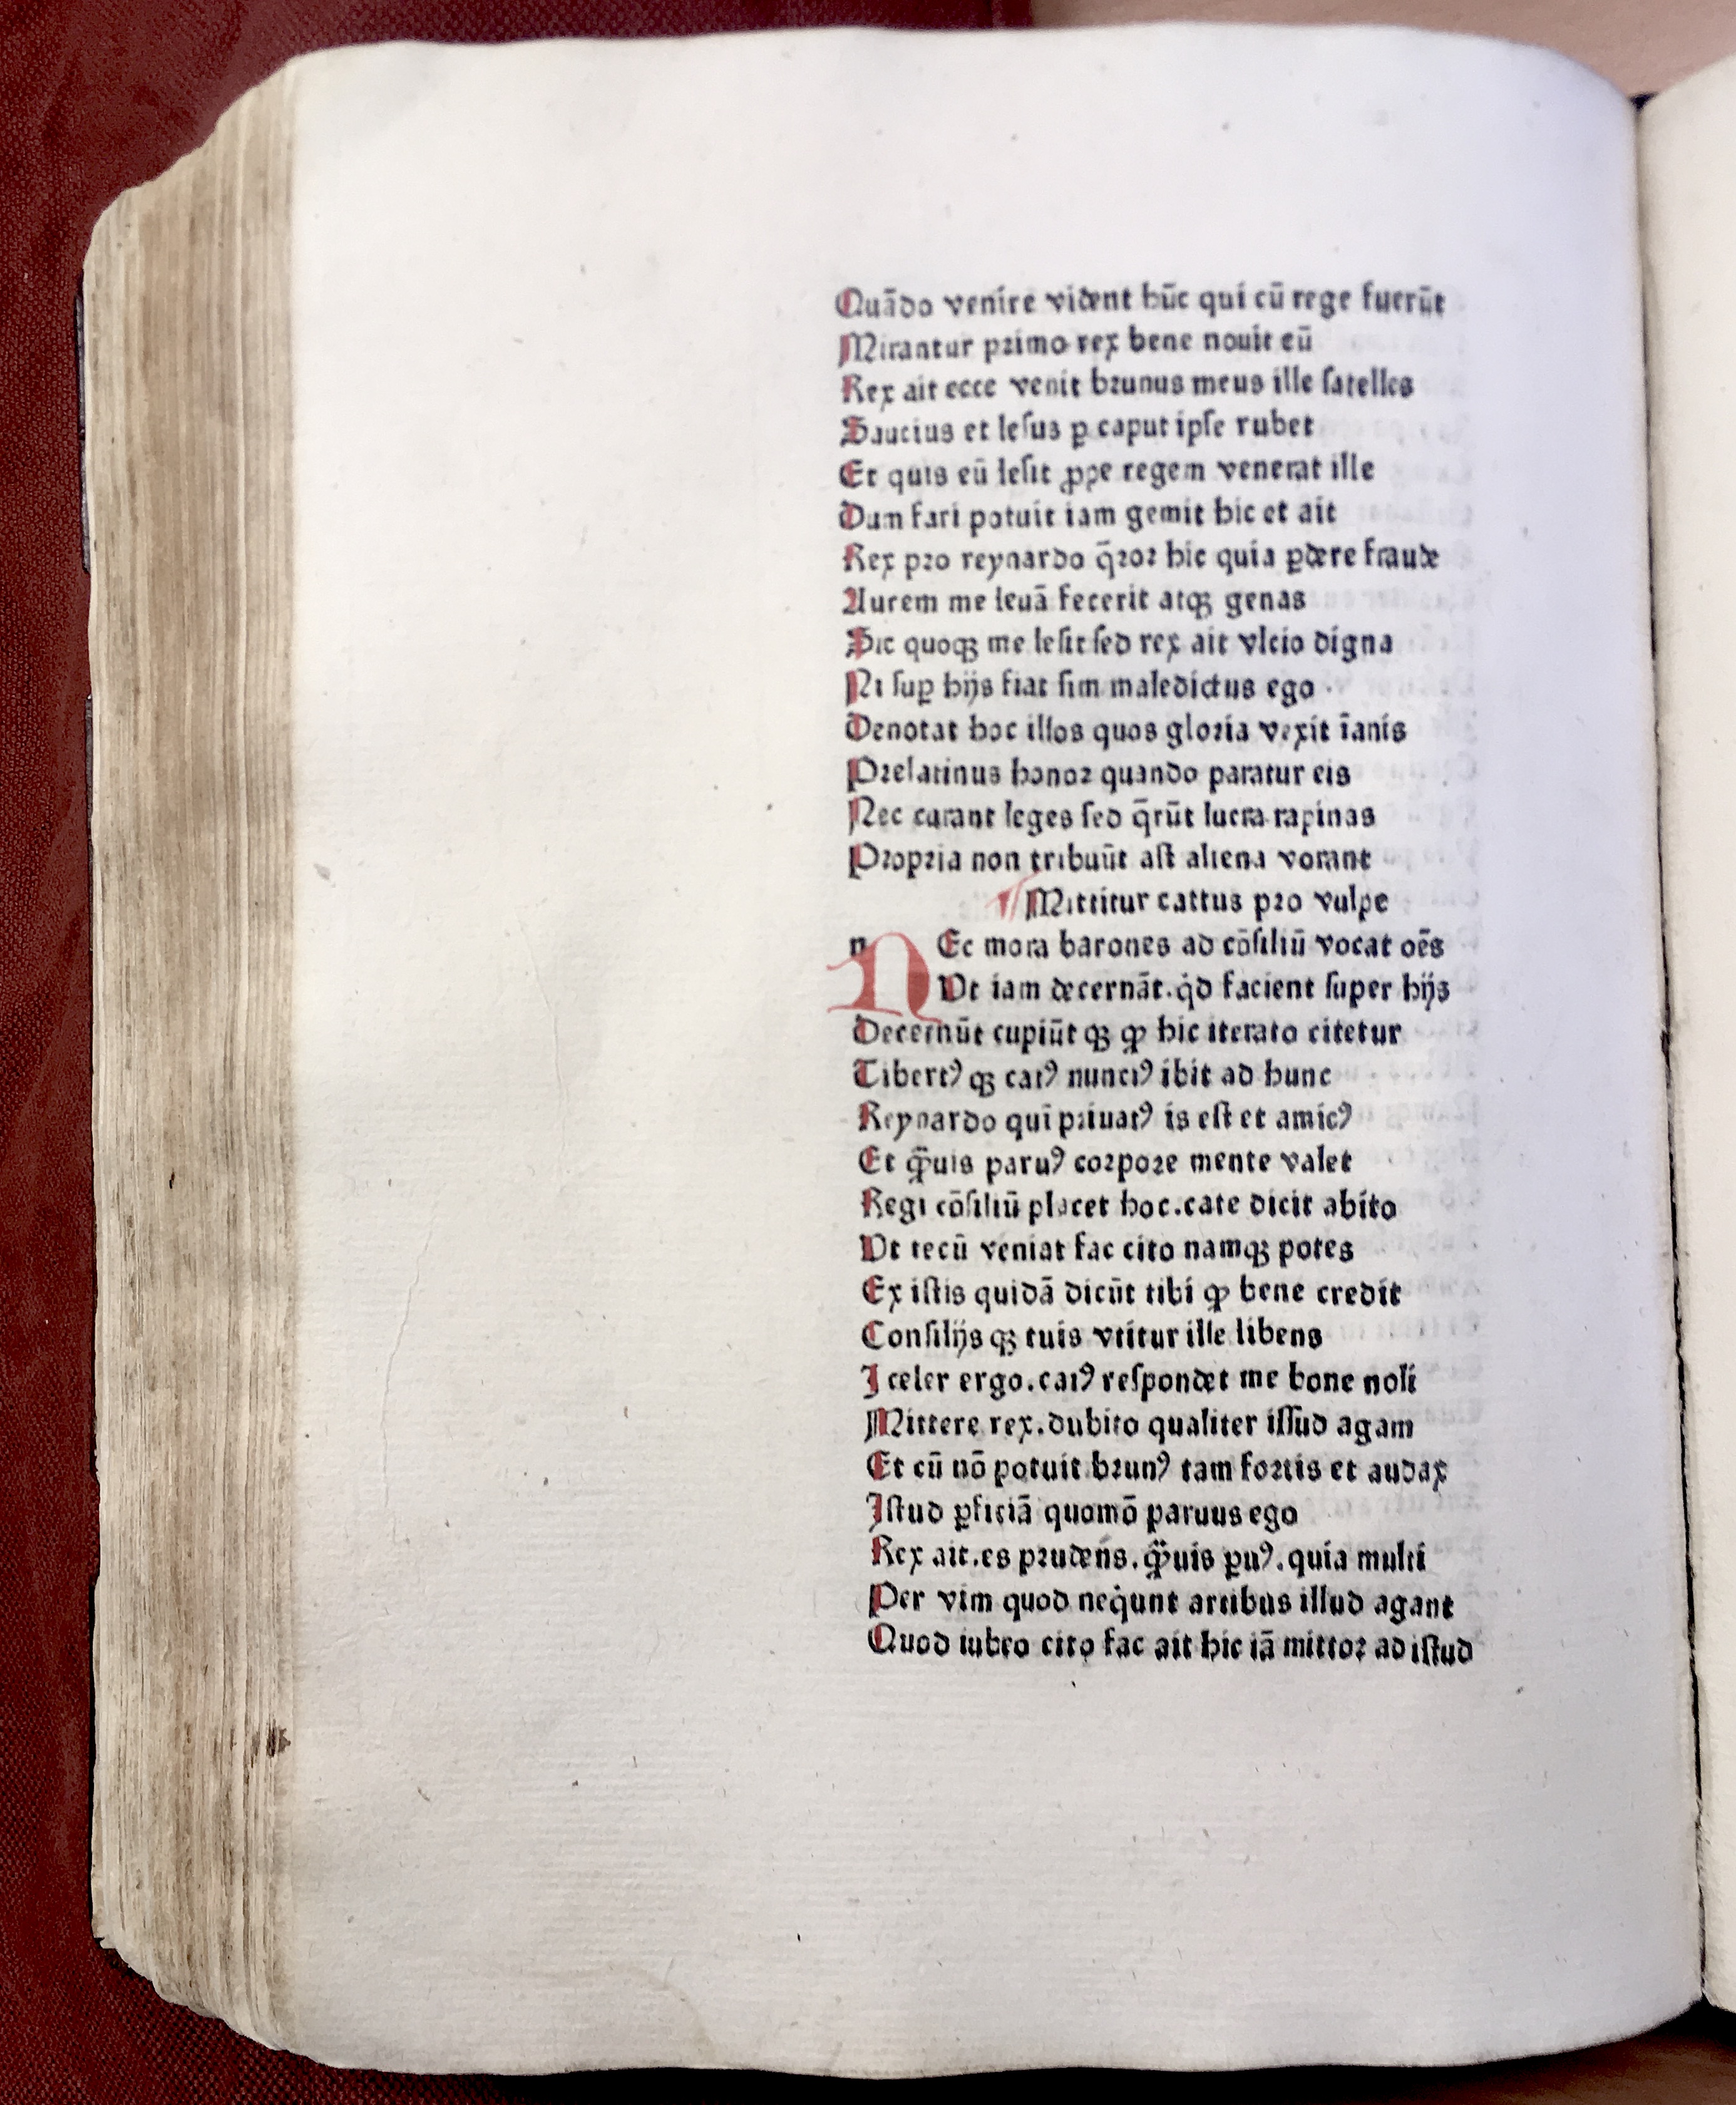 Quãdo venire vident hũc qui cũ rege fuerũt
Mirantur primo rex bene nouit eũ
Rex ait ecce venit brunus meus ille ſatelles
Saucius et leſus ꝑ caput ipſe rubet
Et quis eũ leſit ꝓpe regem venerat ille
Dum fari potuit iam gemit hic et ait
Rex pro reynardo q̃ror hic quia ꝑdere fraude
Aurem me leuã fecerit atqꝫ genas
Sic quoqꝫ me leſit ſed rex ait vlcio digna
Ni ſuꝑ hijs fiat ſim maledictus ego
Denotat hoc illos quos gloria vexit ĩanis
Prelatinus honor quando paratur eis
Nec curant leges ſed q̃rũt lucra rapinas
Propria non tribuũt aſt aliena vorant
Mittitur cattus pro vulpe
n NEc mora barones ad cõſiliũ vocat oẽs
Vt iam decernãt.qd̓ facient ſuper hijs
Decernũt cupiũt qꝫ ꝙ hic iterato citetur
Tibertꝰ qꝫ catꝰ nunciꝰ ibit ad hunc
Reynardo qui priuatꝰ is eſt et amicꝰ
Et q̃uis paruꝰ corpore mente valet
Regi cõſiliũ placet hoc.cate dicit abito
Vt tecũ veniat fac cito namqꝫ potes
Ex iſtis quidã dicũt tibi ꝙ bene credit
Conſilijs qꝫ tuis vtitur ille libens
I celer ergo.catꝰ reſpondet me bone noli
Mittere rex.dubito qualiter iſſud agam
Et cũ nõ potuit brunꝰ tam fortis et audax
Iſtud ꝑficiã quomõ paruus ego
Rex ait.es prudens.q̃uis ꝑuꝰ.quia multi
Per vim quod neq̓unt artibus illud agant
Quod iubeo cito fac ait hic iã mittor ad iſtud